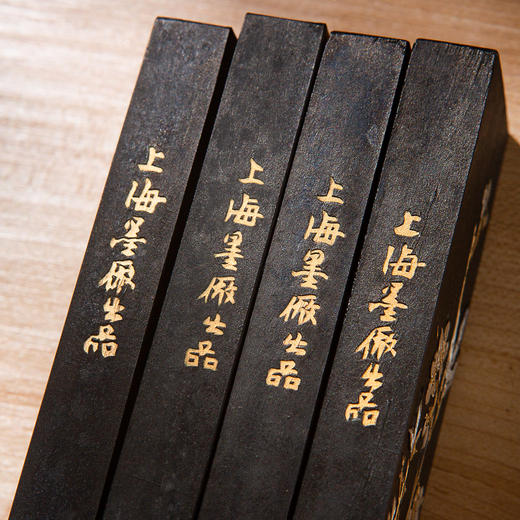 上海墨厰出品
上海墨厰出品
上海墨厰出品
上海墨厰出品